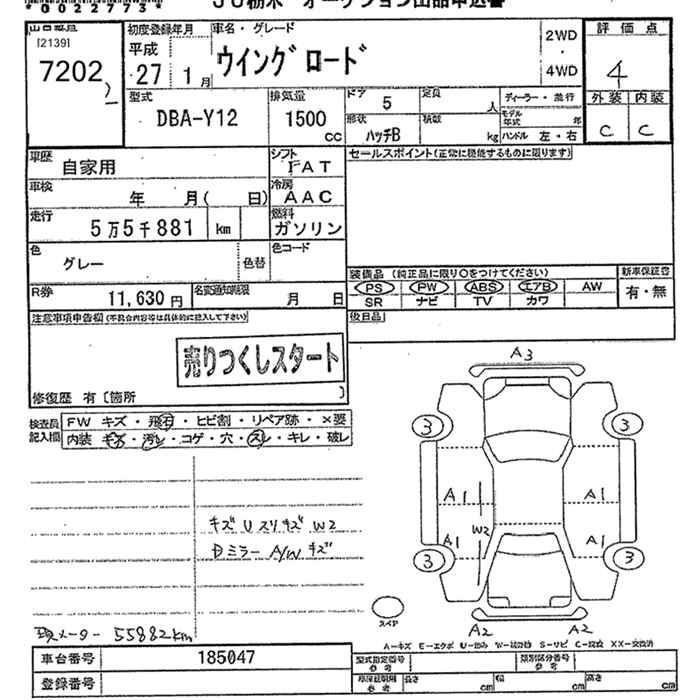 *0022773*
JU栃木 オークション出品申込書
[2139]
7202
初度登録年月
平成
27年 1月
車名・グレード
ウイングロード
2WD
・
4WD
評価点
4
外装 内装
C C
型式
DBA-Y12
排気量
1500
cc
ドア 5
定員 人
形状
ハッチB
積数 kg
ディーラー・並行
モデル年式 年
ハンドル 左・右
車歴
自家用
シフト
FAT
セールスポイント(正常に機能するものに限ります)
車検
年 月( 日)
冷房
AAC
走行
5万5千881 km
燃料
ガソリン
色
グレー
色替
色コード
装備品(純正品に限り○をつけてください)
PS PW ABS エアB AW
SR ナビ TV カワ
新車保証書
有・無
R券
11,630円
名変通知期限
月 日
後日品
注意事項申告欄(不具合内容等は具体的に記入して下さい)
売りつくしスタート
修復歴 有〔箇所 〕
検査員
記入欄
FW キズ・飛石・ヒビ割・リペア跡・×要
内装 キズ・汚レ・コゲ・穴・スレ・キレ・破レ
A3
3 3
A1 A1
W2
A1 A1
3 3
A2 A2
スペア
キズ Uスリキズ W2
Dミラー A/W キズ
現メーター 55882km
A－キズ E－エクボ U－凹み W－波板 S－サビ C－腐食 XX－交換済
車台番号 185047
登録番号
型式指定番号
参考
類別区分番号
参考
車検証明用
参考
長さ cm
幅 cm
高さ cm